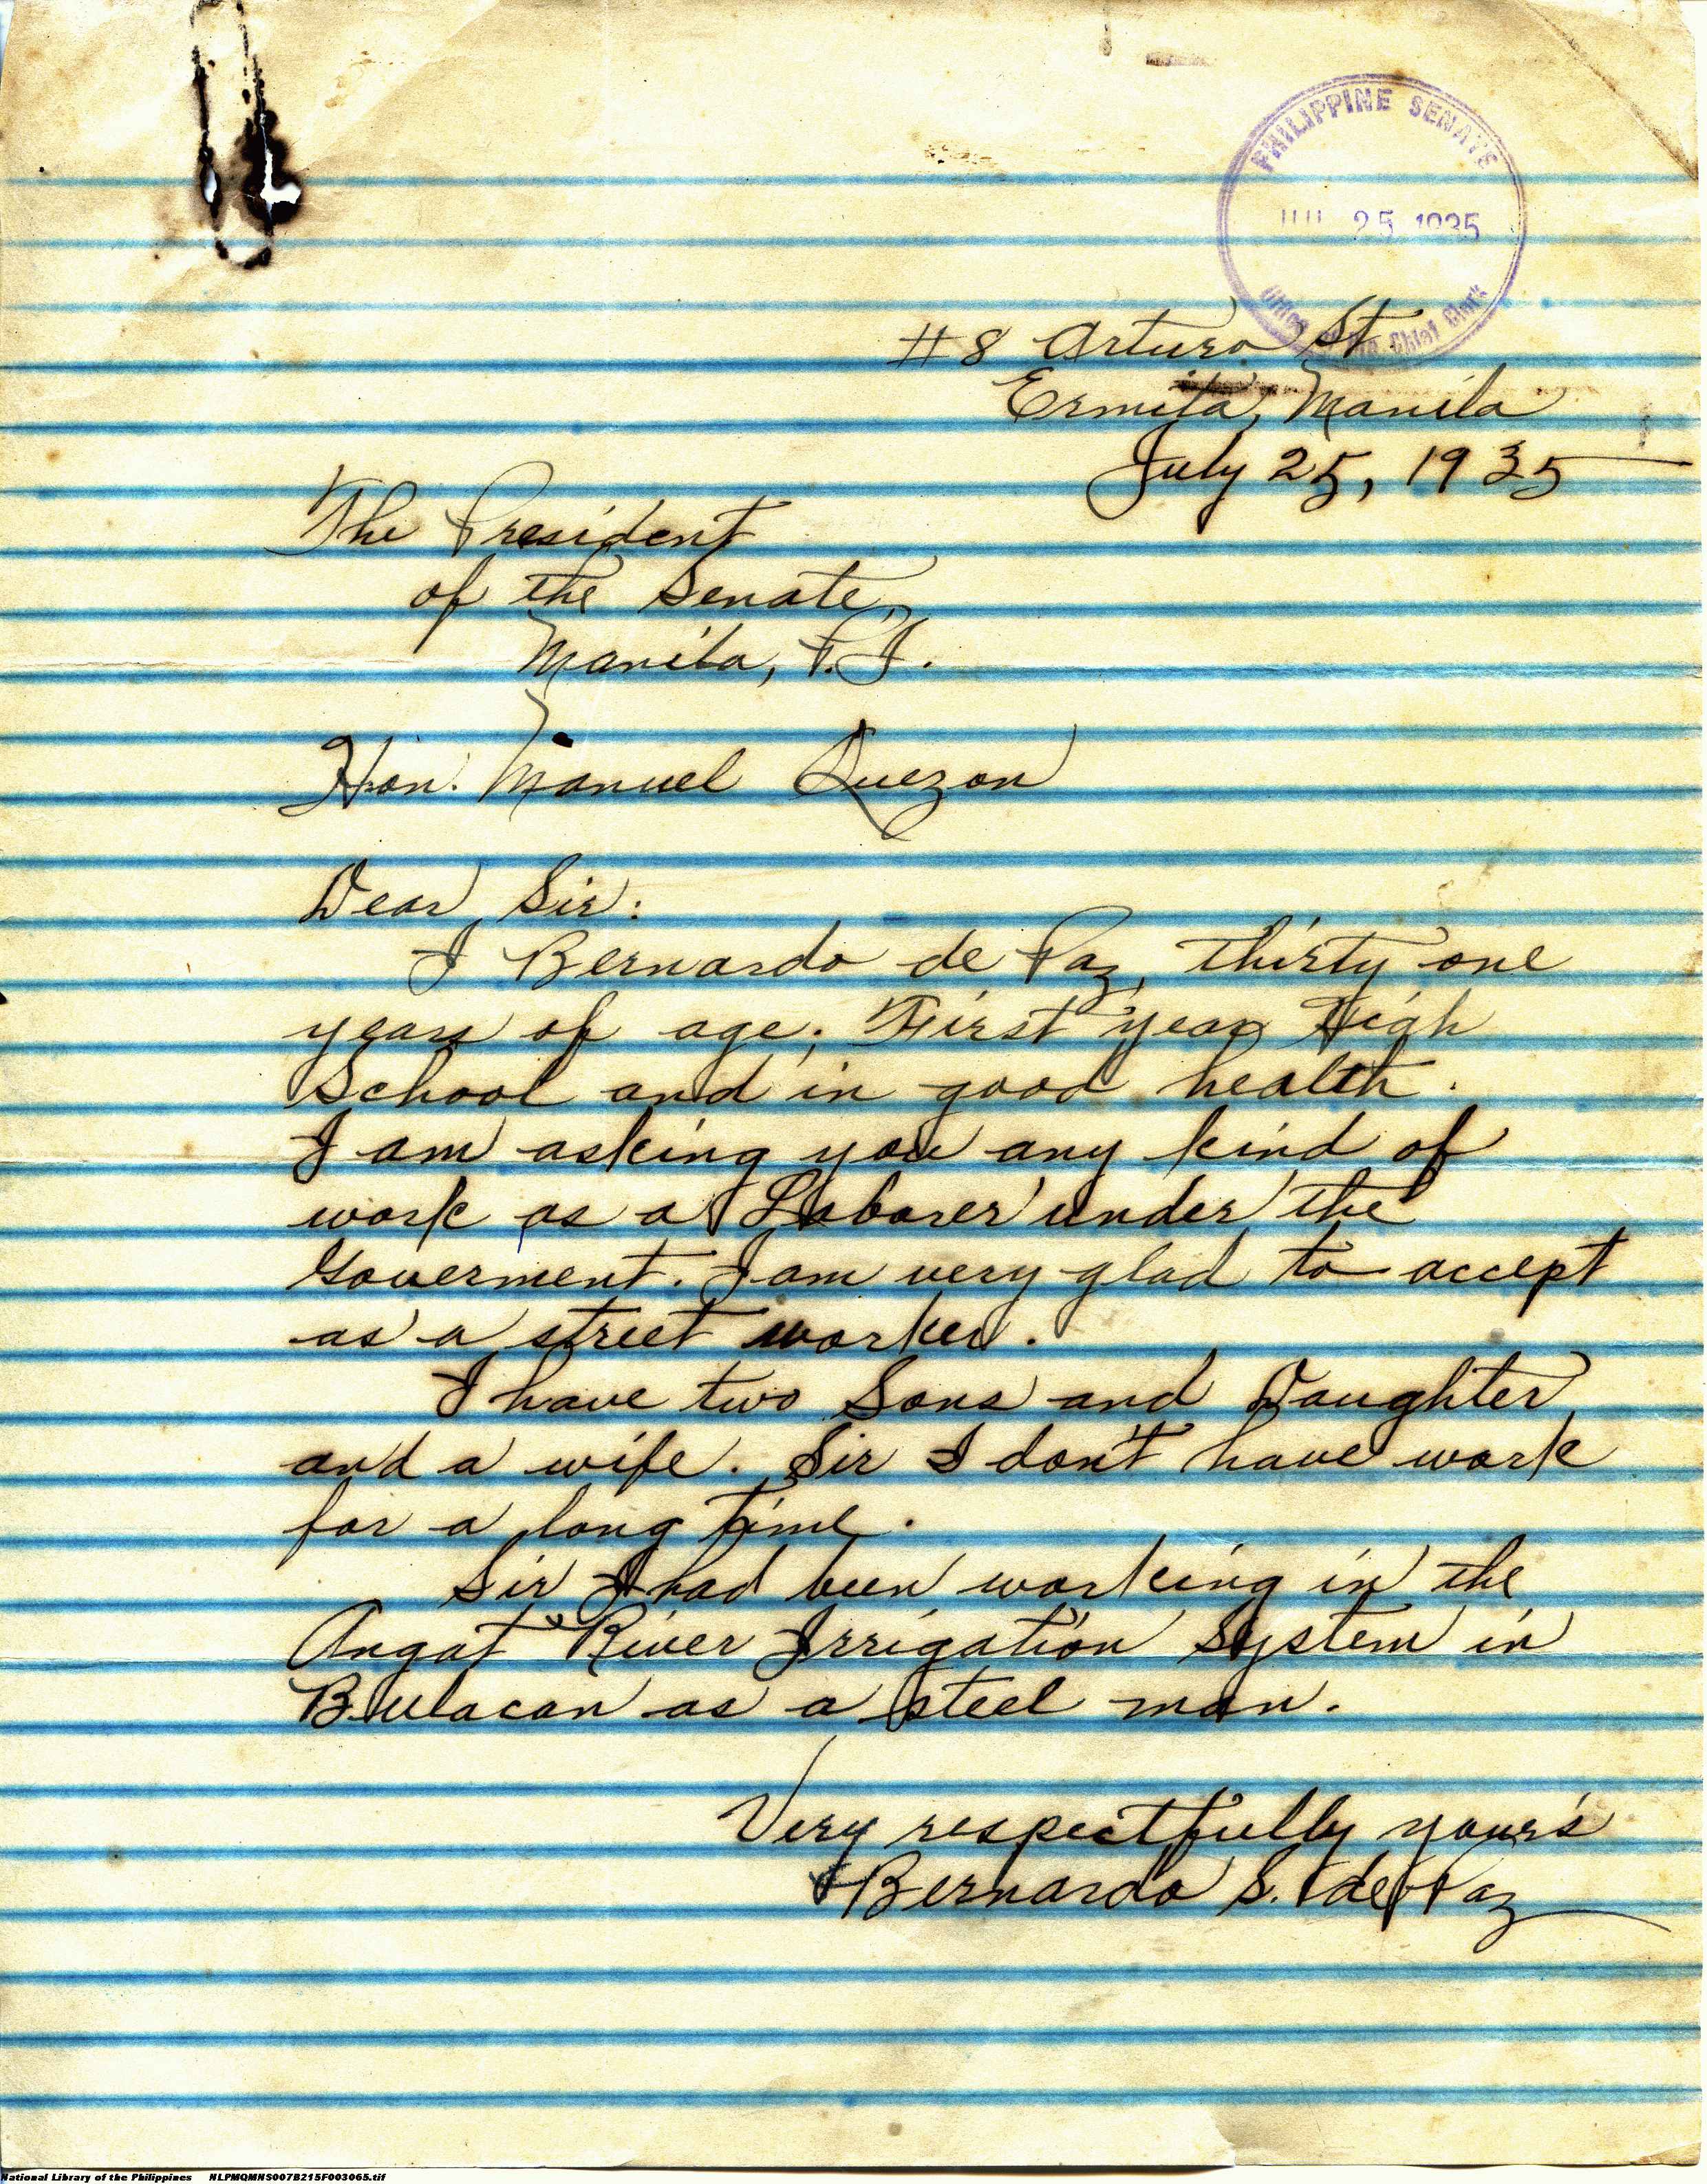 PHILIPPINE SENATE
JUL 25 1935
Office of the Chief Clerk
#8 Arturo St
Ermita, Manila
July 25, 1935
The President
of the Senate,
Manila, P.I.
Hon. Manuel Quezon
Dear Sir:
I Bernardo de Paz, thirty one
years of age; First year High
School and in good health.
I am asking you any kind of
work as a Laborer under the
Goverment. I am very glad to accept
as a street worker.
I have two Sons and Daughter
and a wife. Sir I don't have work
for a long time.
Sir I had been working in the
Angat River Irrigation System in
Bulacan as a steel man.
Very respectfully your's
Bernardo S. de Paz
National Library of the Philippines NLPMQMNS007B215F003065.tif